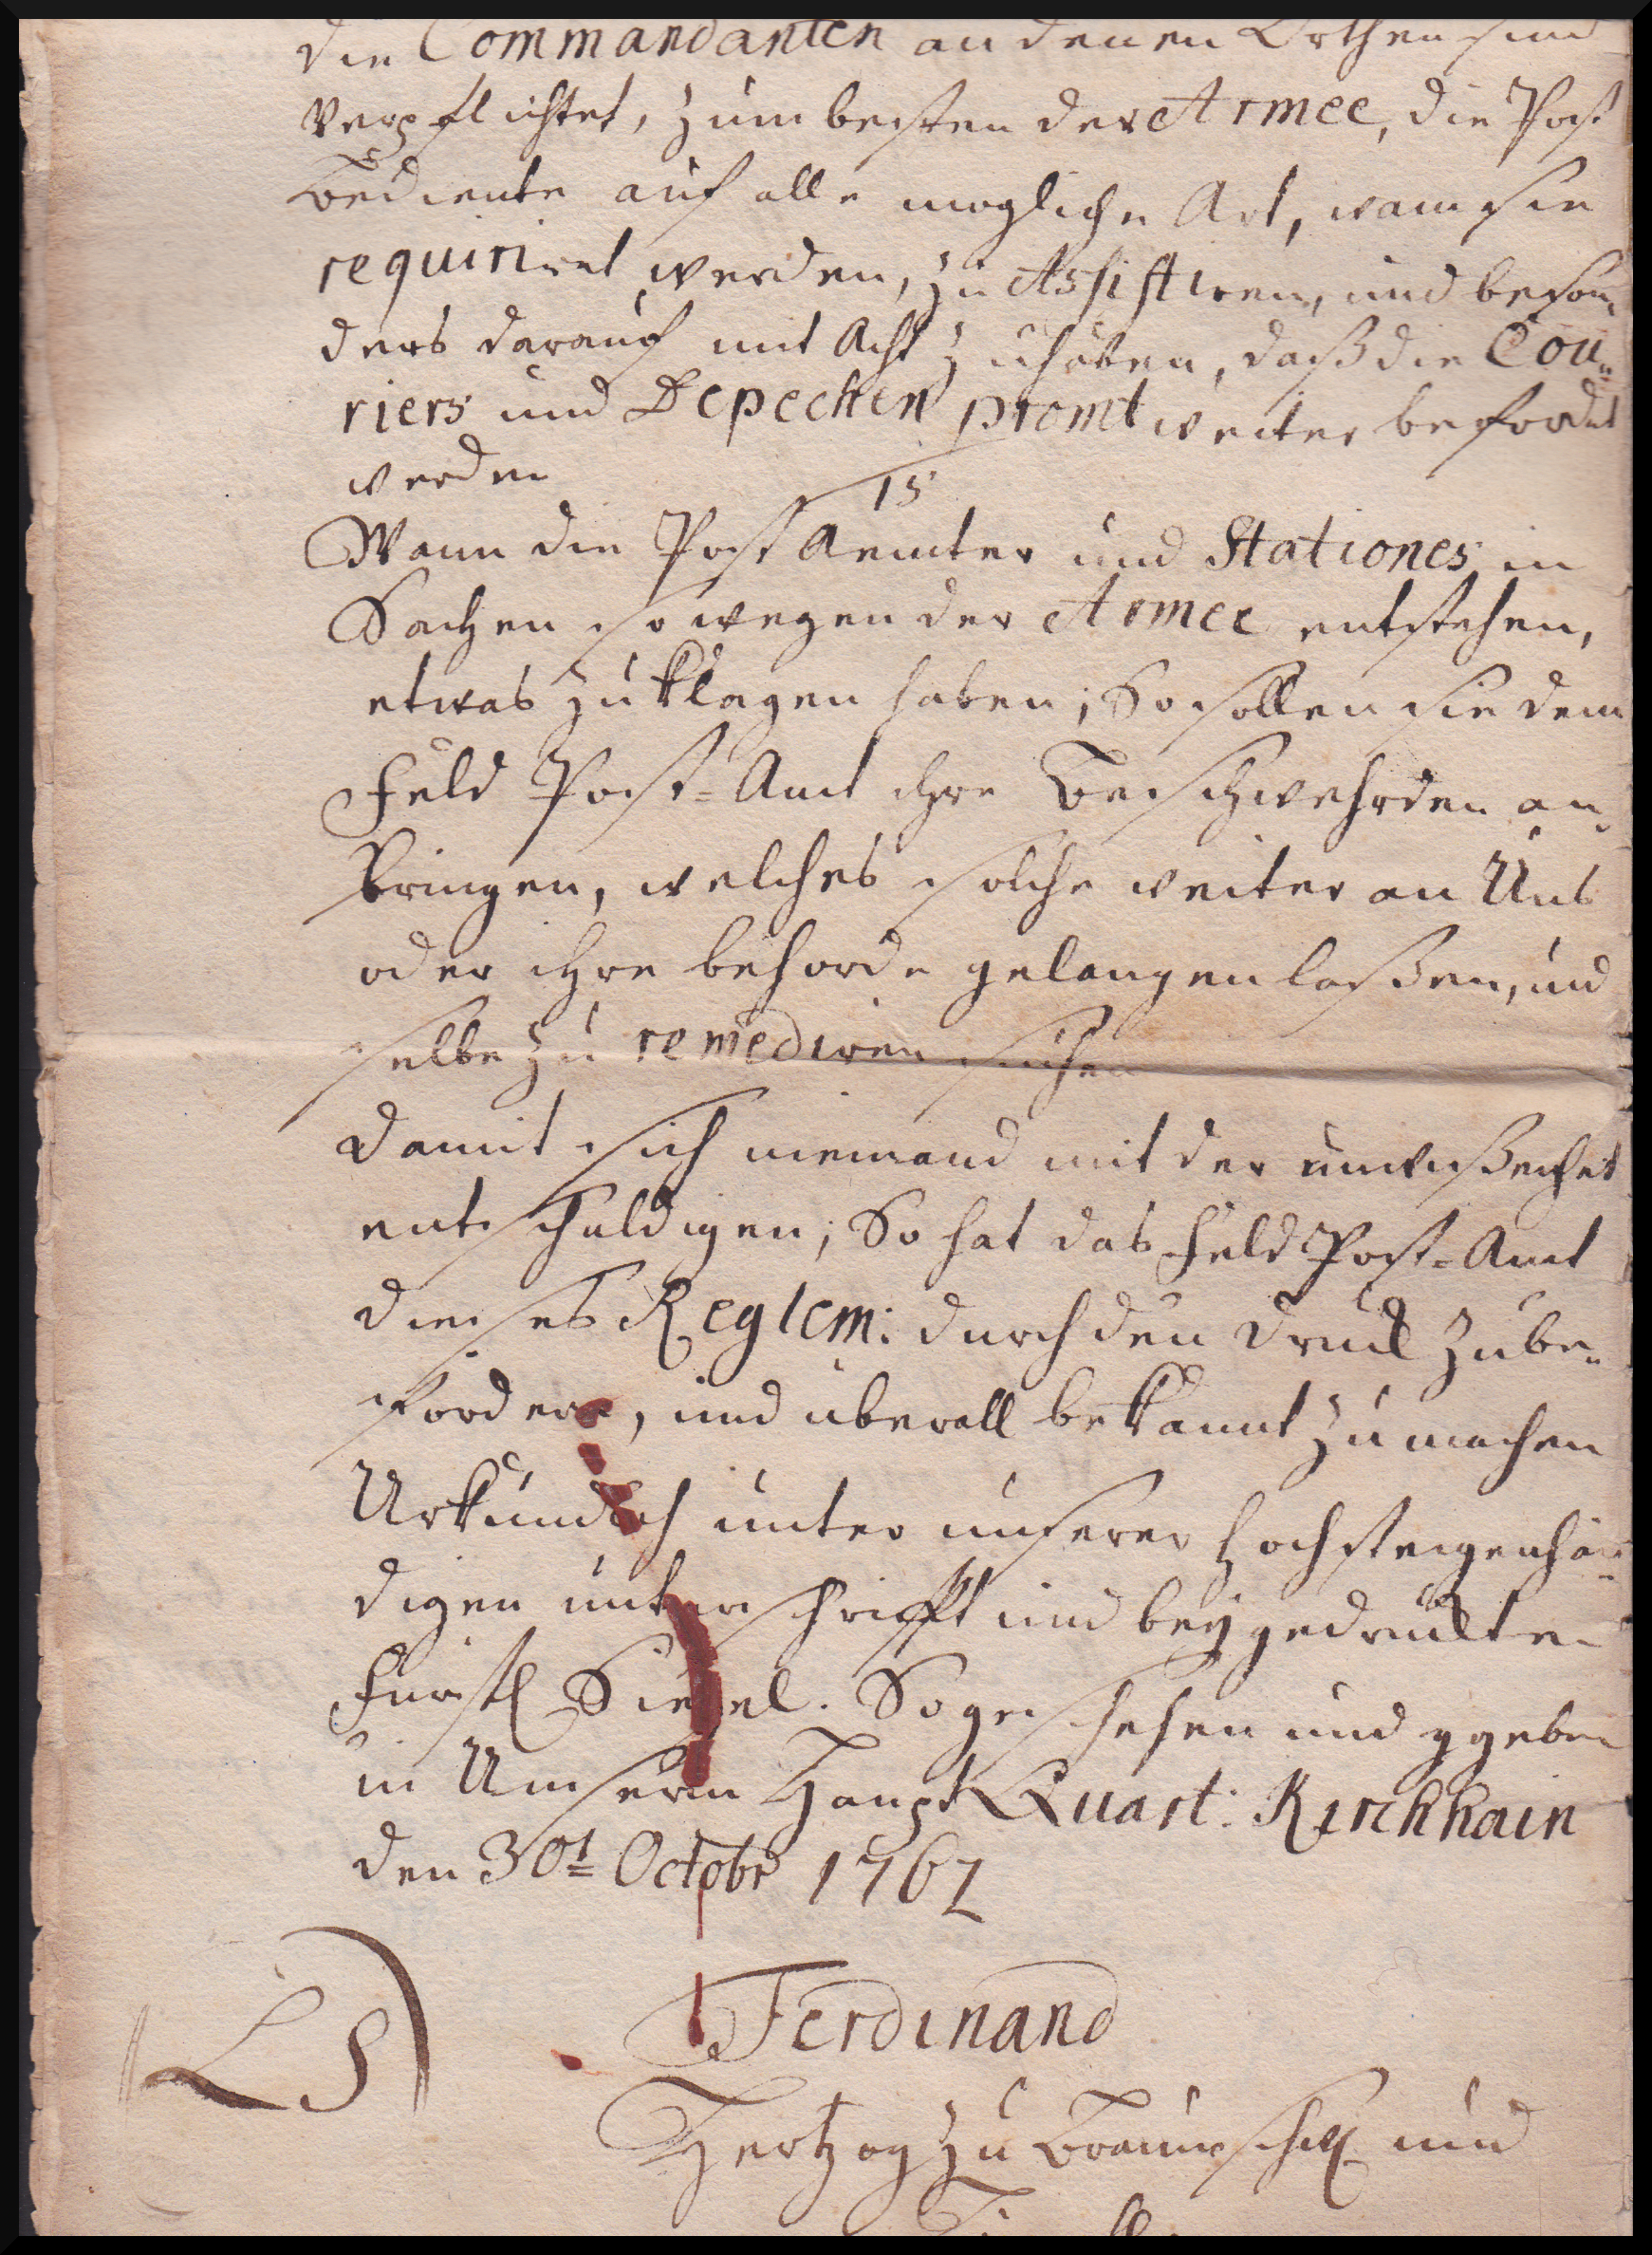 die Commandanten an denen Orthen sind
verpflichtet, zum besten der Armee, die Post
Bediente auf alle mogliche Art, wann sie
requiriret werden, zu Assistiren, und beson„
ders darauf mit Acht zu haben, daß die Cou„
riers und Depechen promt weiter befordert
werden
15
Wann die Post Aemter und Stationes in
Sachen so wegen der Armee entstehen,
etwas zu klagen haben; So sollen sie dem
Feld Post-Amt ihre Beschwehrden an„
bringen, welches solche weiter an Uns
oder ihre behorde gelangen laßen, und
selbe zu remediren suchen
Damit sich niemand mit der unwißenheit
entschuldigen; So hat das Feld Post-Amt
dieses Reglem: durch den Druck zu be„
fordern, und uberall bekannt zu machen
Urkundlich unter unserer hochsteigenhän„
digen unterschrifft und beygedruckten
Furstl Siegel. So geschehen und ggeben
in Unserm Haupt Quart: Kirchhain
den 30t Octobr 1762
LS
Ferdinand
Hertzog zu Braunschw und